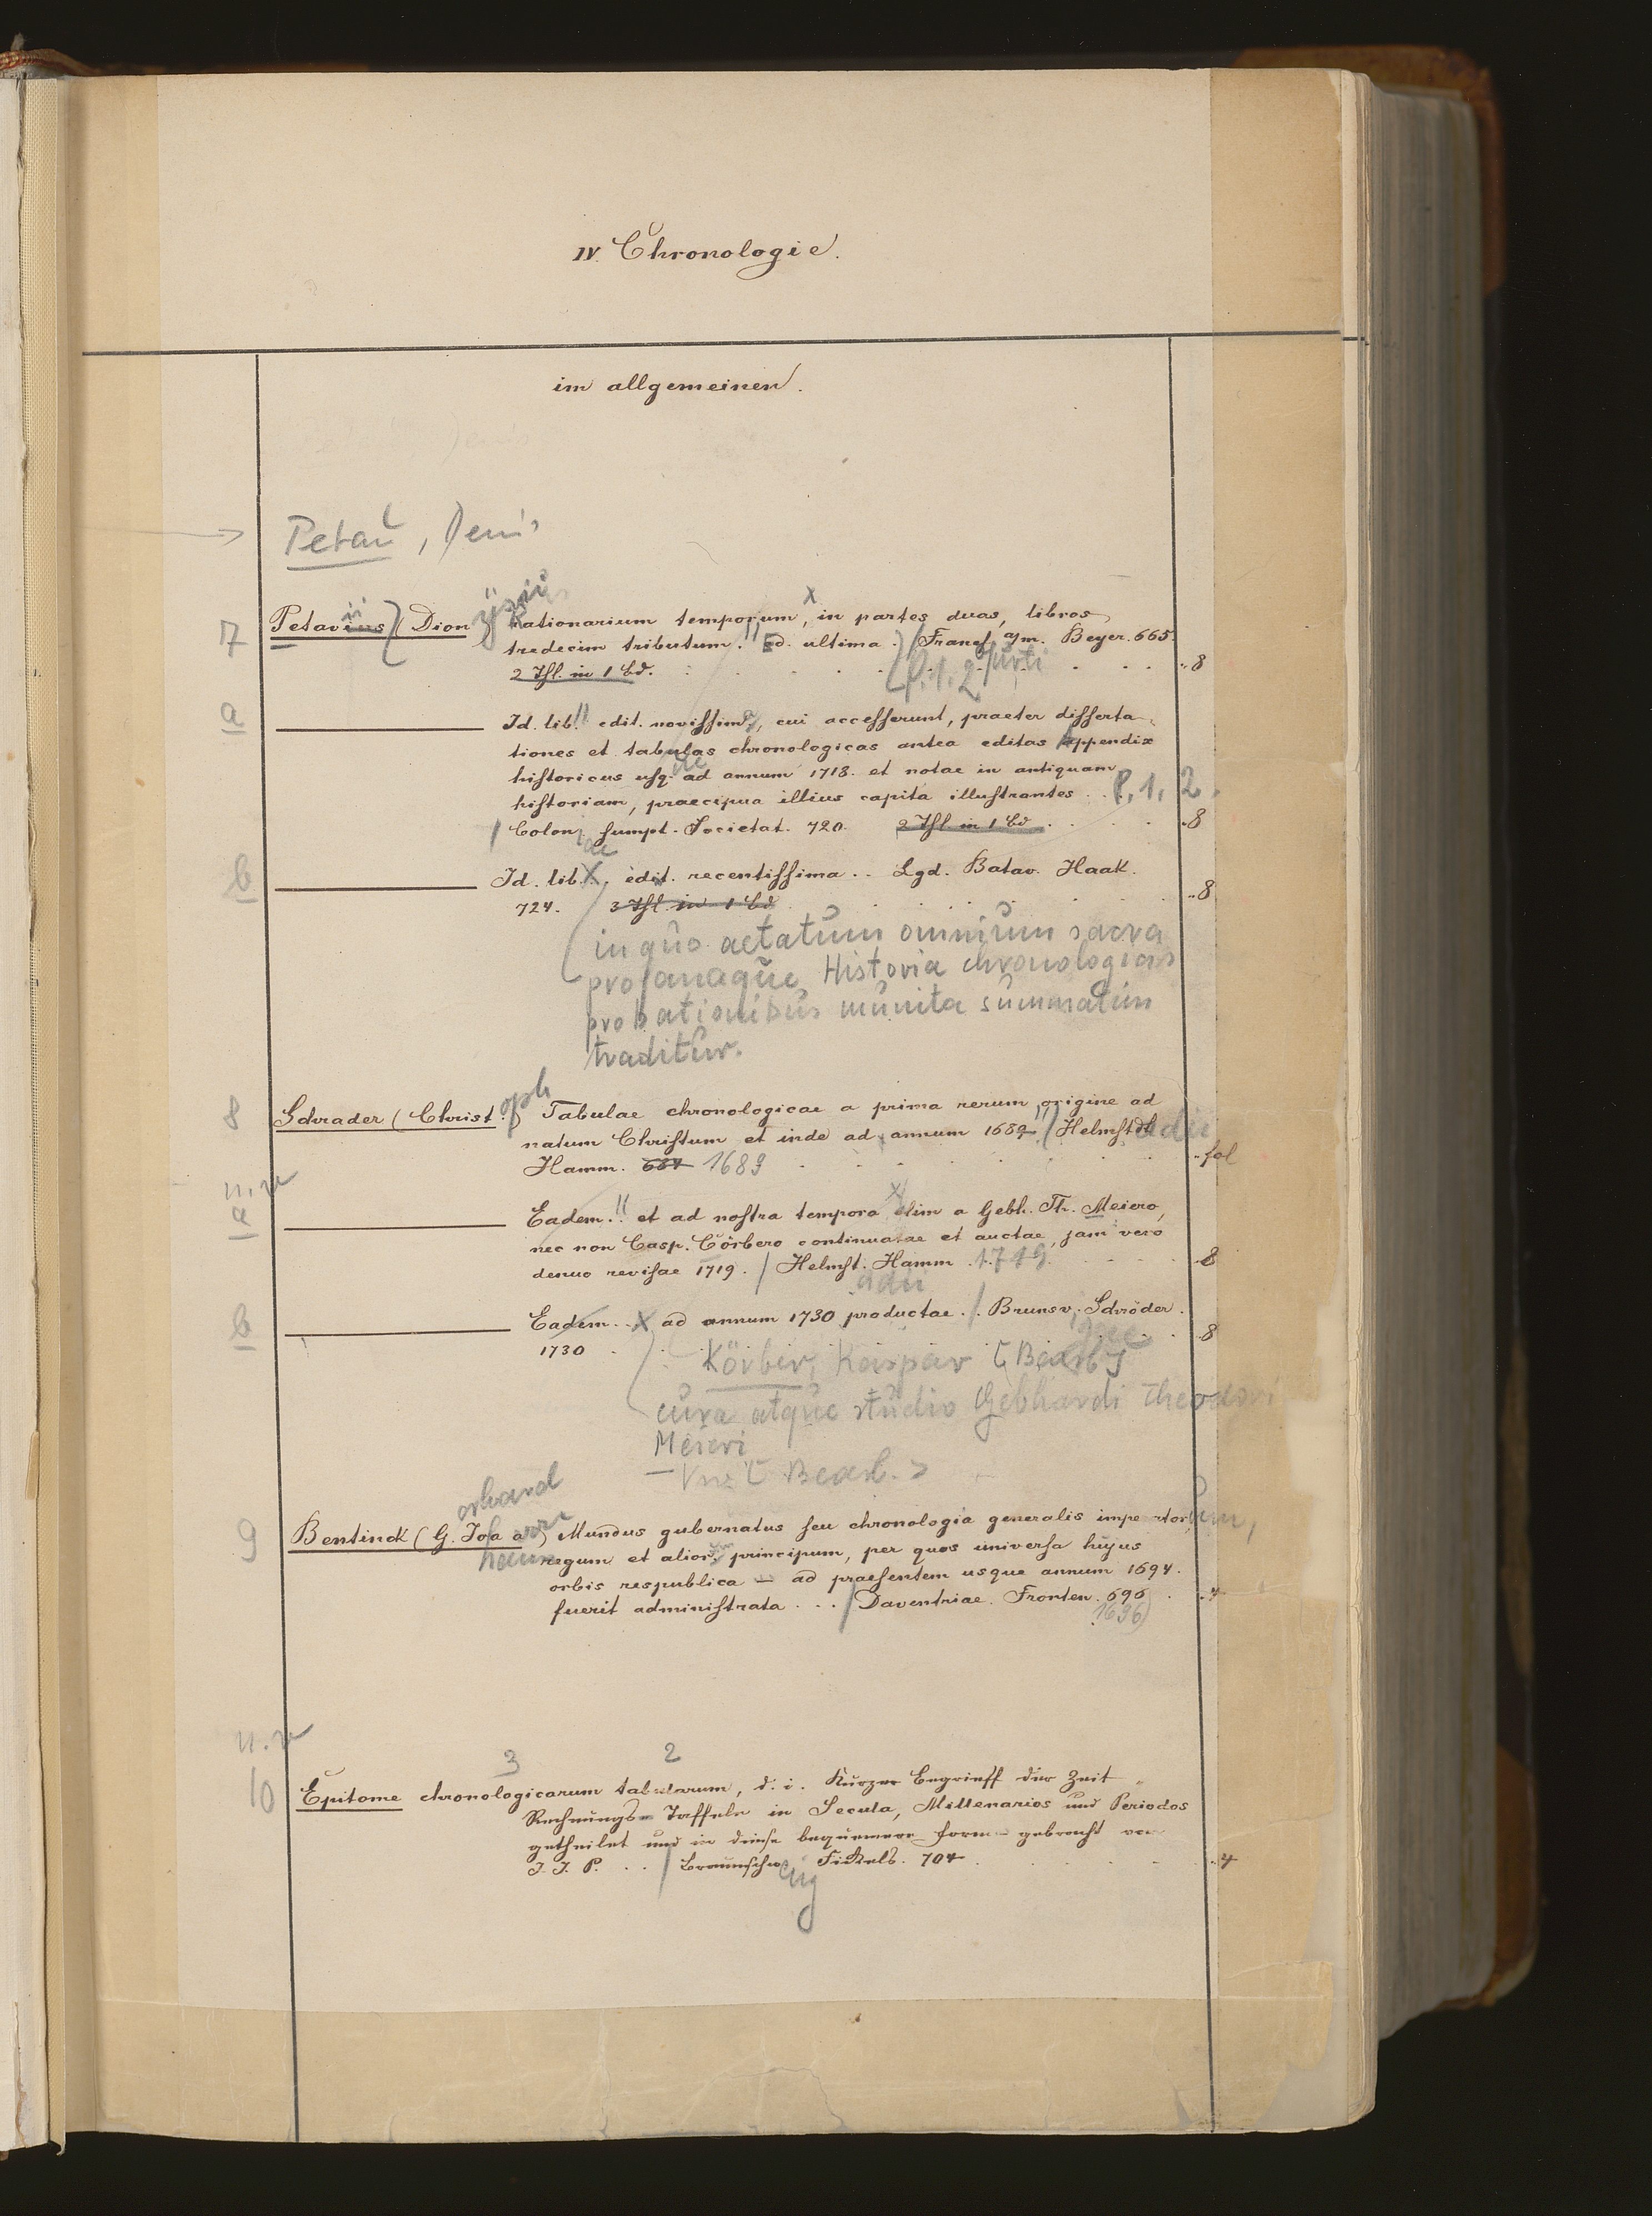 IV. Chronologie.
im allgemeinen.
Petau, Denis
7 Petavius (Dionysii) Rationarium temporum, in partes duas, libros
tredecim tributum. Ed. ultima. Francf. a/m. Beyer. 665.
furti
2 Thl. in 1 Bd. P. 1. 2 8
a Id. lib. edit. novissima, cui accesserunt, praeter disserta-
tiones et tabulas chronologicas antea editas appendix
historicus usq. ad annum 1718. et notae in antiquam
historiam, praecipua illius capita illustrantes . . P. 1, 2.
Colon. sumpt. Societat. 720. 2 Thl. in 1 Bd 8
b Id. lib. edit. recentissima .. Lgd. Batav. Haak.
724. 3 Thl. in 1 Bd 8
in quo aetatum omnium sacra
profanaque Historia chronologicis
probationibus munita summatim
traditur.
8 Schrader (Christoph) Tabulae chronologicae a prima rerum origine ad
natum Christum et inde ad annum 1689 / Helmstadii
Hamm. 684 1689 fol
a Eadem. et ad nostra tempora olim a Gebh. Th. Meiero,
nec non Casp. Cörbero continuatae et auctae, jam vero
denuo revisae 1719. / Helmst. Hamm. 1719 8
adii
b Eadem .. ad annum 1730 productae. / Brunsv. Schröder.
1730 8
Körber, Kaspar [Bearb.]
cura atque studio Gebhardi Theodori
Meieri
Bearb.
9 Bentinck (G. Joa a) Mundus gubernatus seu chronologia generalis imperatorum,
regum et alior. principum, per quos universa hujus
orbis respublica - ad praesentem usque annum 1694.
fuerit administrata ... / Daventriae. Fronten. 696 4
1696
3 2
10 Epitome chronologicarum tabularum, d. i. Kurzer Begrieff der Zeit
Rechnungs-Taffeln in Secula, Millenarios und Periodos
getheilet und in diese bequemere form gebracht von
J. J. P. .. / Braunschweig Fickels. 704 4